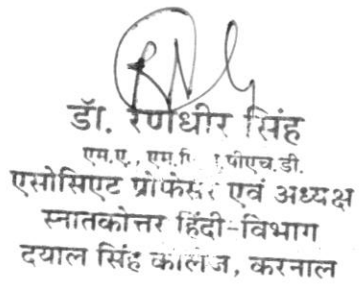 डॉ. रणधीर सिंह
एम.ए., एम. पीएच.डी.
एसोसिएट प्रोफेसर एवं अध्यक्ष
स्नातकोत्तर हिंदी-विभाग
दयाल सिंह कालेज, करनाल